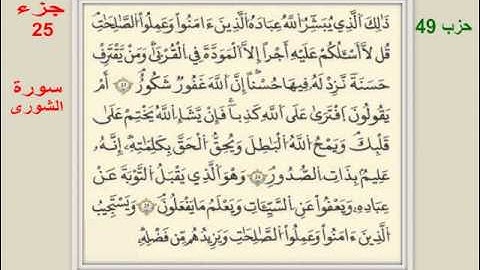 جزء
25
سورة
الشورى
حزب 49
ذَٰلِكَ ٱلَّذِى يُبَشِّرُ ٱللَّهُ عِبَادَهُ ٱلَّذِينَ ءَامَنُوا۟ وَعَمِلُوا۟ ٱلصَّٰلِحَٰتِ
قُل لَّآ أَسْـَٔلُكُمْ عَلَيْهِ أَجْرًا إِلَّا ٱلْمَوَدَّةَ فِى ٱلْقُرْبَىٰ وَمَن يَقْتَرِفْ
حَسَنَةً نَّزِدْ لَهُۥ فِيهَا حُسْنًا إِنَّ ٱللَّهَ غَفُورٌ شَكُورٌ ٢٣ أَمْ
يَقُولُونَ ٱفْتَرَىٰ عَلَى ٱللَّهِ كَذِبًا فَإِن يَشَإِ ٱللَّهُ يَخْتِمْ عَلَىٰ
قَلْبِكَ وَيَمْحُ ٱللَّهُ ٱلْبَٰطِلَ وَيُحِقُّ ٱلْحَقَّ بِكَلِمَٰتِهِۦٓ إِنَّهُۥ
عَلِيمٌۢ بِذَاتِ ٱلصُّدُورِ ٢٤ وَهُوَ ٱلَّذِى يَقْبَلُ ٱلتَّوْبَةَ عَنْ
عِبَادِهِۦ وَيَعْفُوا۟ عَنِ ٱلسَّيِّـَٔاتِ وَيَعْلَمُ مَا يَفْعَلُونَ ٢٥ وَيَسْتَجِيبُ
ٱلَّذِينَ ءَامَنُوا۟ وَعَمِلُوا۟ ٱلصَّٰلِحَٰتِ وَيَزِيدُهُم مِّن فَضْلِهِۦ